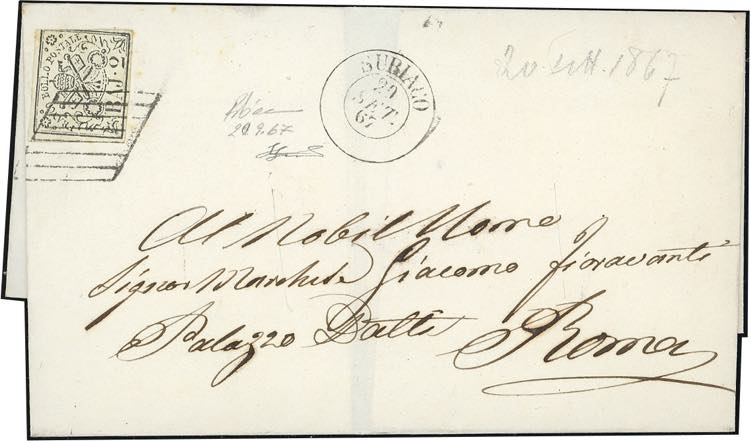 BOLLO POSTALE
BAJ
SUBIACO
20
SET.
67
20 Sett. 1867
20.9.67
Al Nobil Uomo
Signor Marchese Giacomo Fioravanti
Palazzo Datti Roma